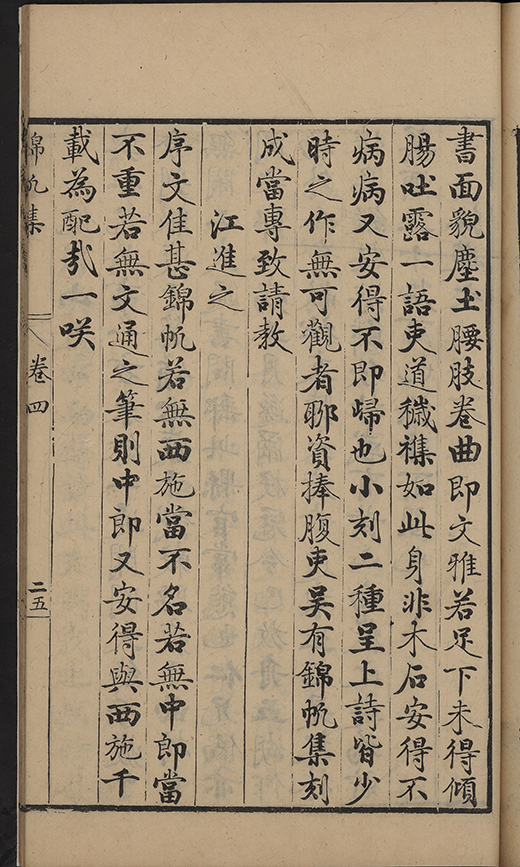 書面貌塵土腰肢卷曲即文雅若足下未得傾
腸吐露一語吏道穢襍如此身非木石安得不
病病又安得不即歸也小刻二種呈上詩皆少
時之作無可觀者聊資捧腹吏吳有錦帆集刻
成當專致請教
江進之
序文佳甚錦帆若無西施當不名若無中郎當
不重若無文通之筆則中郎又安得與西施千
載為配㢤一咲
錦帆集
卷四
二五